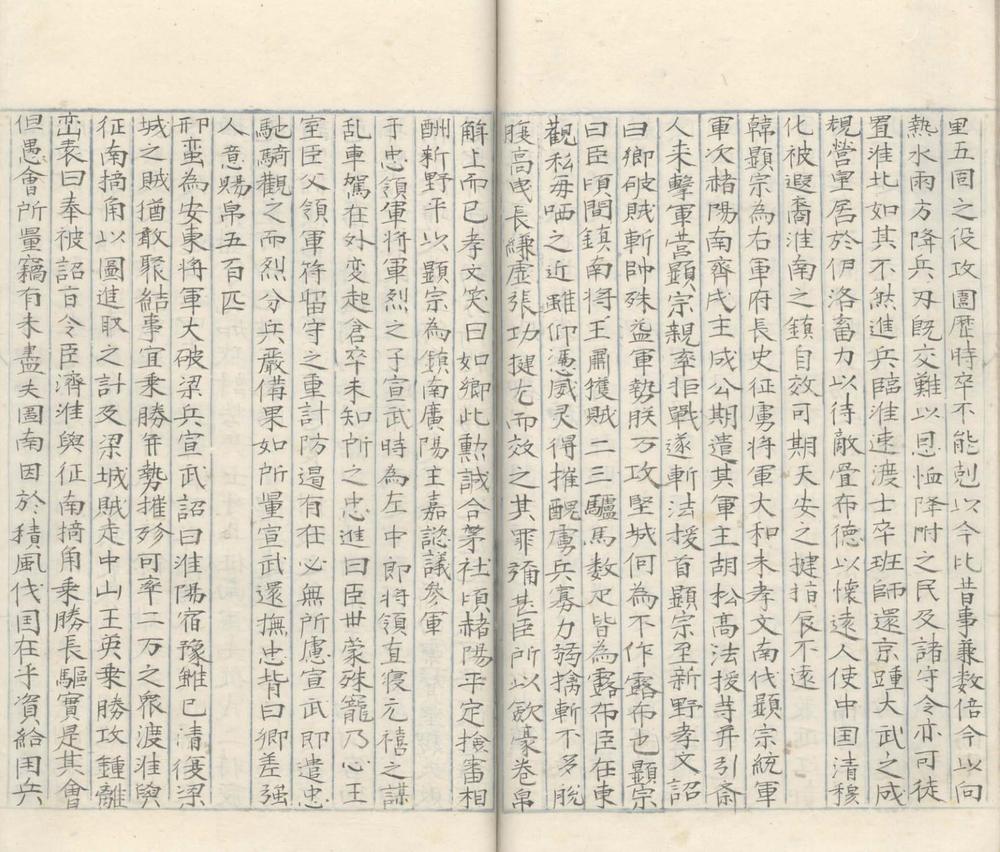 里五固之役攻圍歷時卒不能剋以今比昔事兼数倍今以向
熱水雨方降兵刃既交難以恩恤降附之民及諸守令亦可徒
置淮北如其不然進兵臨淮速渡士卒班師還京踵大武之成
規營皇居於伊洛畜力以待敵舋布德以懷遠人使中囯清穆
化被遐裔淮南之鎮自效可期天安之揵指辰不遠
韓顯宗為右軍府長史征虜将軍大和末孝文南伐顯宗統軍
軍次赭陽南齊戍主成公期遣其軍主胡松高法援䓁并引斎
人来擊軍营顯宗親率拒戰遂斬法援首顯宗至新野孝文詔
曰卿破賊斬帥殊益軍勢朕方攻堅城何為不作露布也顯宗
曰臣頃聞鎮南将王肅獲賊二三驢馬数疋皆為露布臣在東
觀私毎哂之近雖仰憑威灵得摧醜虜兵寡力弱擒斬不多脱
腹高曳長縑虚張功揵尤而效之其罪彌甚臣所以歛毫卷帛
解上而已孝文笑曰如卿此勲誠合茅社頃赭陽平定撿審相
酬新野平以顯宗為鎮南廣陽王嘉諮議參軍
于忠領軍将軍烈之子宣武時為左中郎将領直寑元禧之謀
乱車駕在外变起倉卒未知所之忠進曰臣丗蒙殊寵乃心王
室臣父領軍苻留守之重計防遏有在必無所慮宣武即遣忠
馳騎觀之而烈分兵嚴備果如所量宣武還撫忠背曰卿差强
人意賜帛五百匹
邢蛮為安東将軍大破梁兵宣武詔曰淮陽宿豫雖已清復梁
城之賊猶敢聚結事宜乗勝并勢摧殄可率二万之衆渡淮與
征南掎角以圖進取之計及梁城賊走中山王英乗勝攻鍾離
峦表曰奉被詔旨令臣濟淮與征南掎角乗勝長驅實是其會
但愚會所量竊有未盡夫圖南因於積風伐囯在乎資給用兵